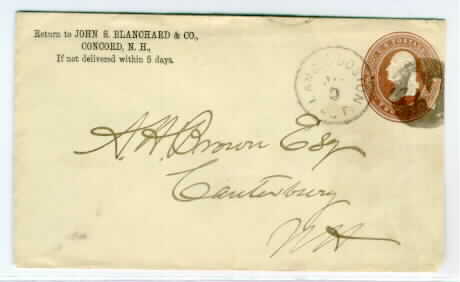 Return to JOHN S. BLANCHARD & CO.,
CONCORD, N. H.,
If not delivered within 5 days.
U.S. POSTAGE
A. H. Brown Esq
Canterbury
NH